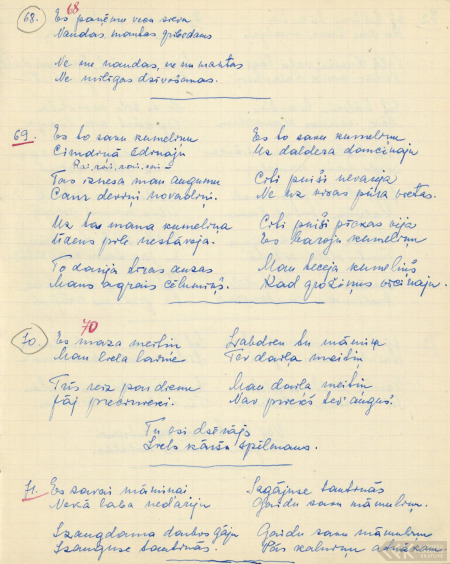 68.
68
Es paņēmu veca sieva
Naudas, mantas gribēdams
Ne no naudas, ne no mantas
Ne mīlīgas dzīvošanas.
69.
Es to savu kumeliņu
Cimdiņā ēdināju
Rai, rai, rai, rai
Tas iznesa man augumu
Caur deviņi novadiņi.
Uz tā mana kumeliņa
ūdens pile nestāvēja.
To darīja tīras auzas
Mans agrais cēlumiņš.
Es to savu kumeliņu
Uz daldera dancināju
Citi puiši nevarēja
Ne uz visas pūra vietas.
Citi puiši pīckas vija
Es baroju kumeliņu
Man tecēja kumeliņš
Kad grožiņus vicināju.
70.
70
Es maza meitiņ
Man liela laime
Trīs reiz par dienu
jāj precinieki.
Labdien tu māmiņa
Tev daiļa meitiņ
Man daiļa meitiņ
Nav priekš tev augus.
Tu esi dzērājs
Liels kāršu spēlmans.
71.
Es savai māmiņai
Nekā laba nedarīju
Izaugdama darbos gāju
Izauguse tautiņās.
Izgājuse tautiņās
Gaidu savu māmuliņu.
Gaidu savu māmuliņu
Pār kalniņu atnākam.